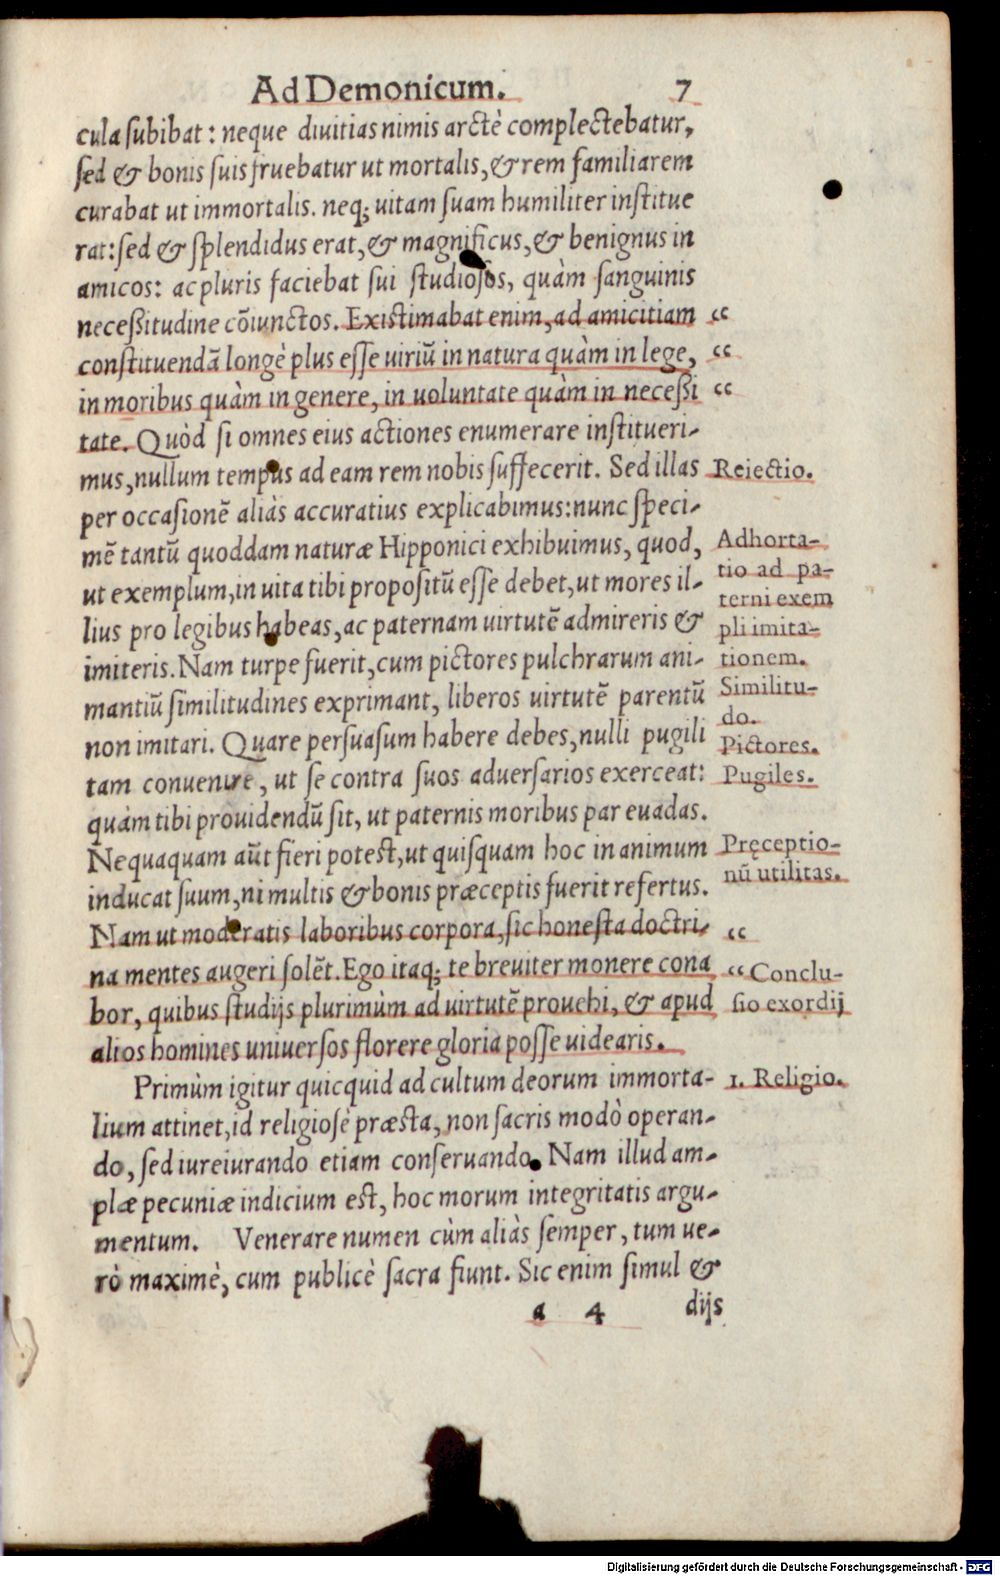 Ad Demonicum. 7
cula ſubibat : neque diuitias nimis arctè complectebatur,
ſed & bonis ſuis fruebatur ut mortalis, & rem familiarem
curabat ut immortalis. neq; uitam ſuam humiliter inſtitue
rat: ſed & ſplendidus erat, & magnificus, & benignus in
amicos: ac pluris faciebat ſui ſtudioſos, quàm ſanguinis
neceßitudine cōiunctos. Existimabat enim, ad amicitiam “
conſtituendā longè plus eſſe uiriū in natura quàm in lege, “
in moribus quàm in genere, in uoluntate quàm in neceßi “
tate. Quòd ſi omnes eius actiones enumerare inſtitueri-
mus, nullum tempus ad eam rem nobis ſuffecerit. Sed illas Reiectio.
per occaſionē aliàs accuratius explicabimus: nunc ſpeci-
mē tantū quoddam naturæ Hipponici exhibuimus, quod, Adhorta-
ut exemplum, in uita tibi propoſitū eſſe debet, ut mores il- tio ad pa-
terni exem
lius pro legibus habeas, ac paternam uirtutē admireris & pli imita-
imiteris. Nam turpe fuerit, cum pictores pulchrarum ani- tionem.
mantiū ſimilitudines exprimant, liberos uirtutē parentū Similitu-
do.
non imitari. Quare perſuaſum habere debes, nulli pugili Pictores.
tam conuenire, ut ſe contra ſuos aduerſarios exerceat: Pugiles.
quàm tibi prouidendū ſit, ut paternis moribus par euadas.
Nequaquam aūt fieri potest, ut quiſquam hoc in animum Pręceptio-
inducat ſuum, ni multis & bonis præceptis fuerit refertus. nū utilitas.
Nam ut moderatis laboribus corpora, ſic honeſta doctri- “
na mentes augeri ſolēt. Ego itaq; te breuiter monere cona “ Conclu-
bor, quibus ſtudijs plurimùm ad uirtutē prouehi, & apud ſio exordij
alios homines uniuerſos florere gloria poſſe uidearis.
Primùm igitur quicquid ad cultum deorum immorta- 1. Religio.
lium attinet, id religioſè præsta, non ſacris modò operan-
do, ſed iureiurando etiam conſeruando. Nam illud am-
plæ pecuniæ indicium est, hoc morum integritatis argu-
mentum. Venerare numen cùm aliàs ſemper, tum ue-
rò maximè, cum publicè ſacra fiunt. Sic enim ſimul &
a 4 dijs
Digitalisierung gefördert durch die Deutsche Forschungsgemeinschaft - DFG